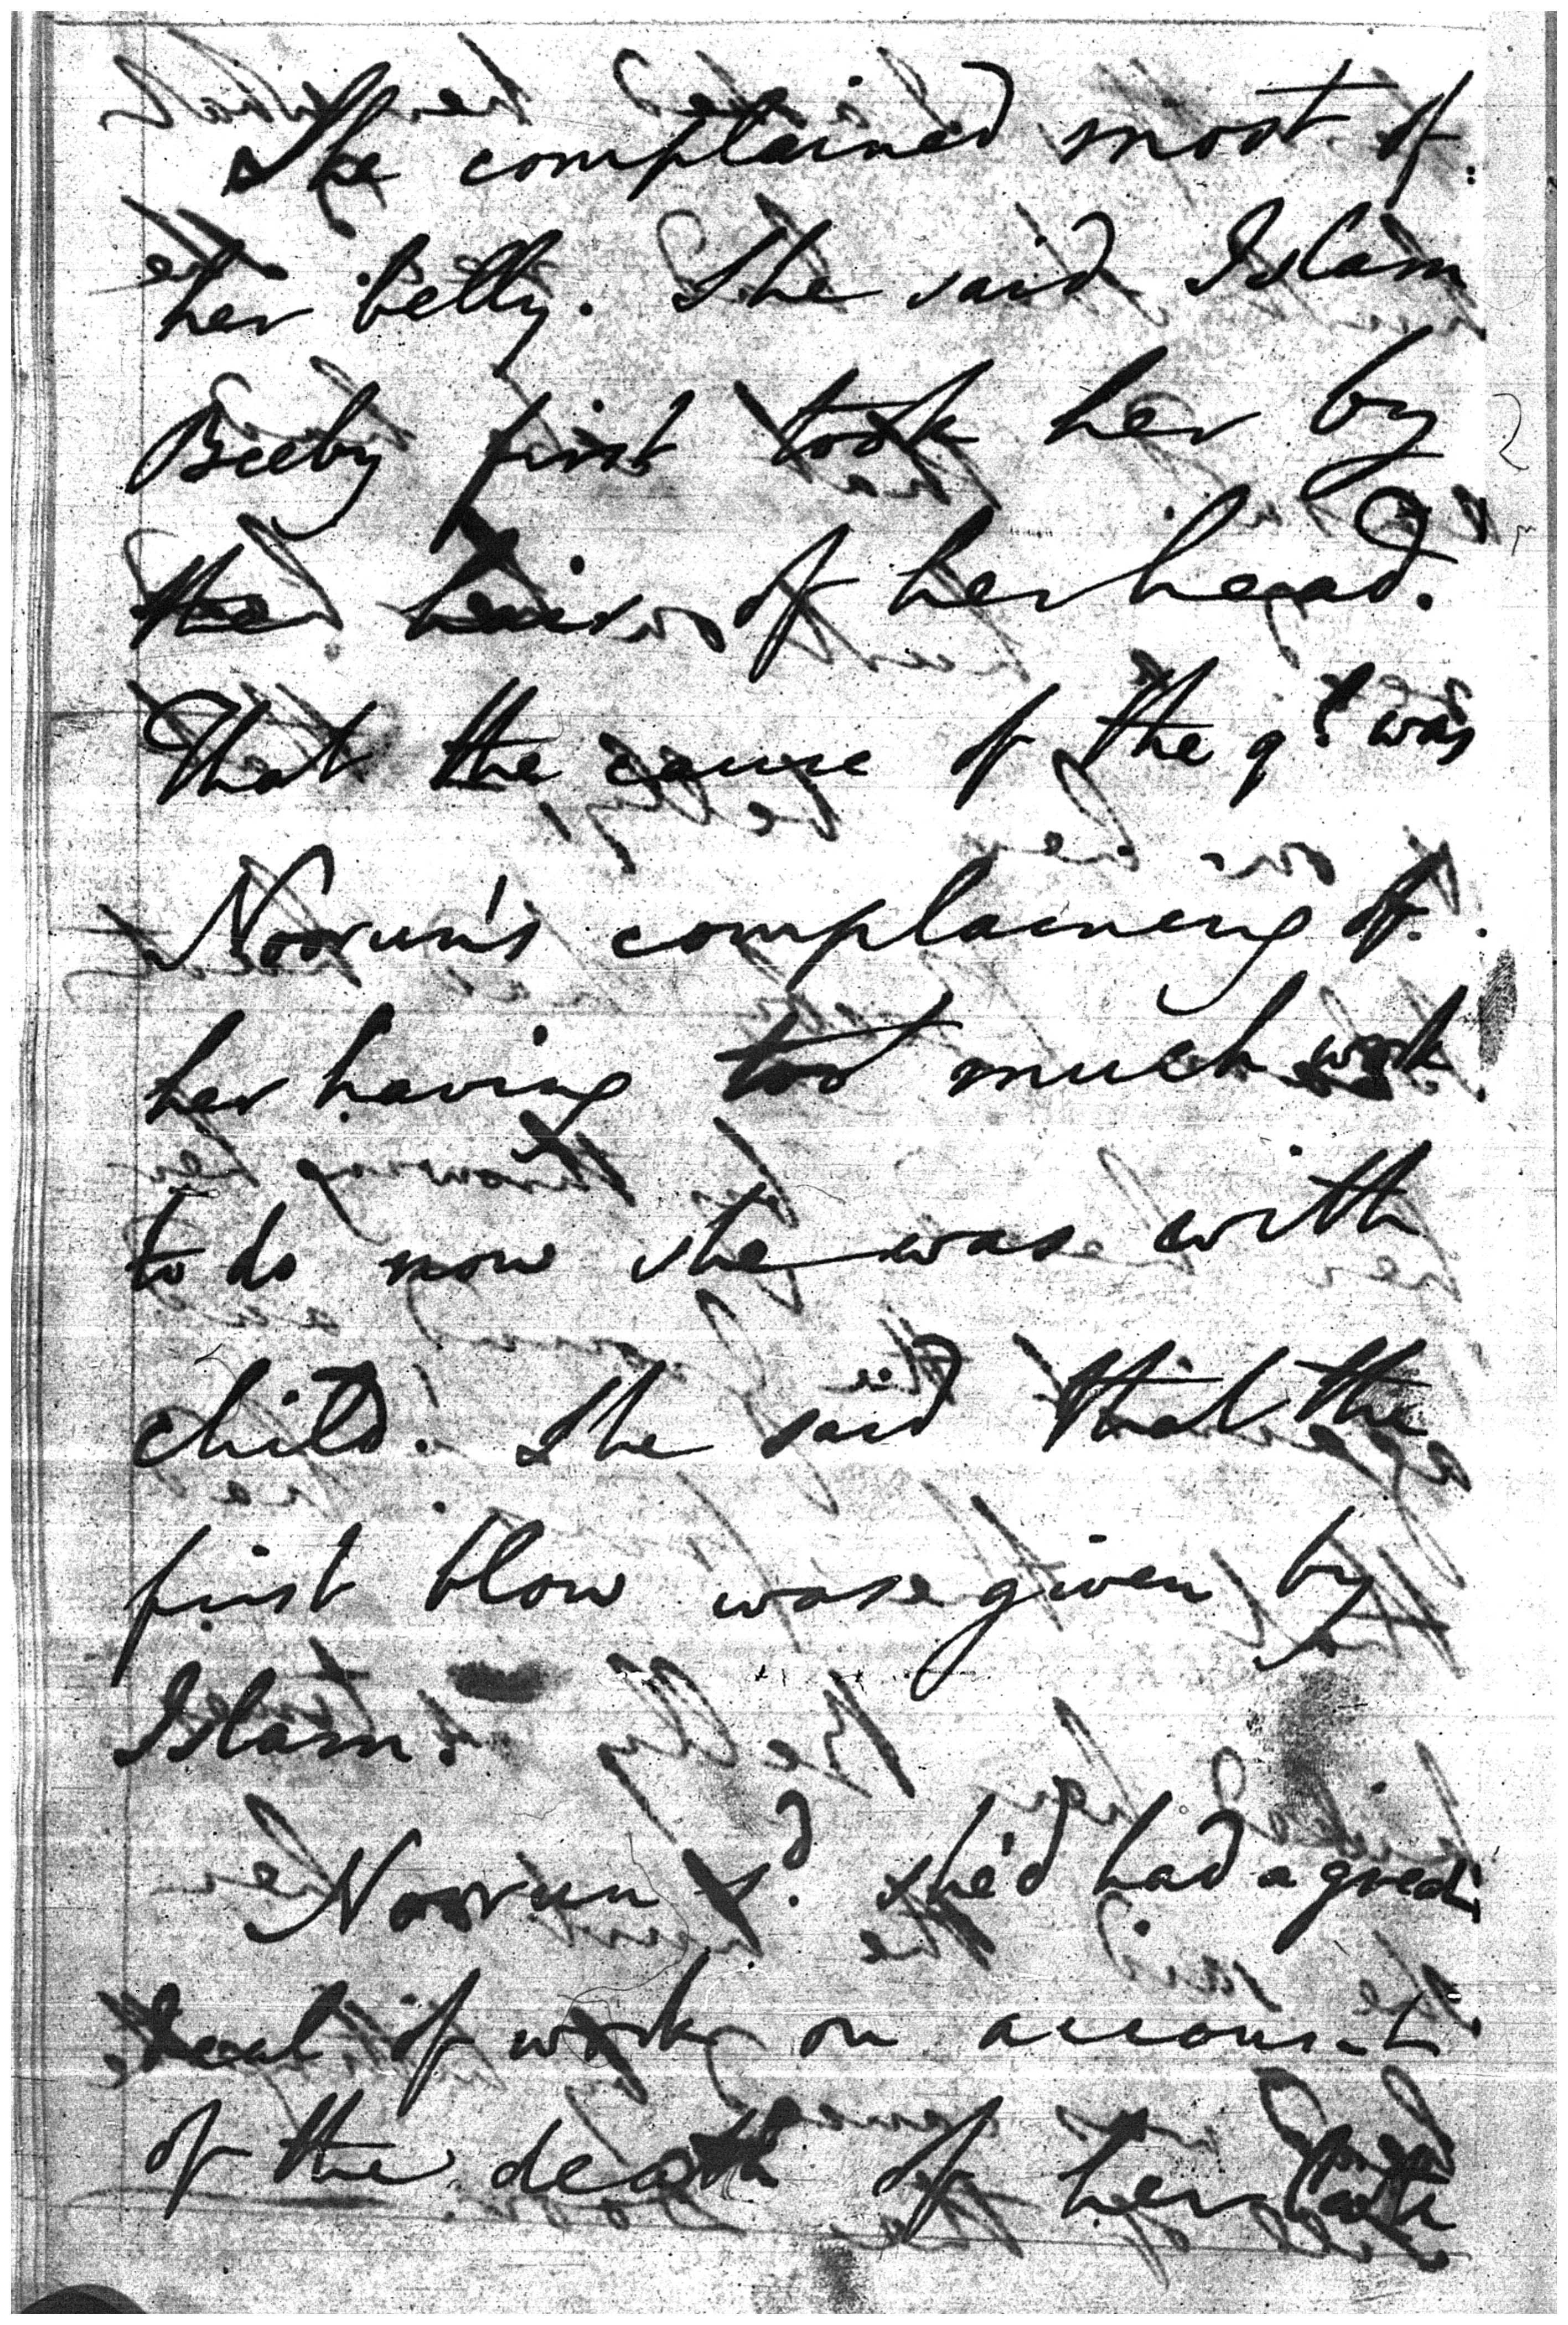 She complained most of
her belly. She said Islam
Beeby first took her by
the hair of her head.
That the cause of the q.l was
Noorun's complaining of
her having too much work
to do now she was with
child. She said that the
first blow was given by
Islam.
Noorun s.d she'd had a great
deal of work on account
of the death of her